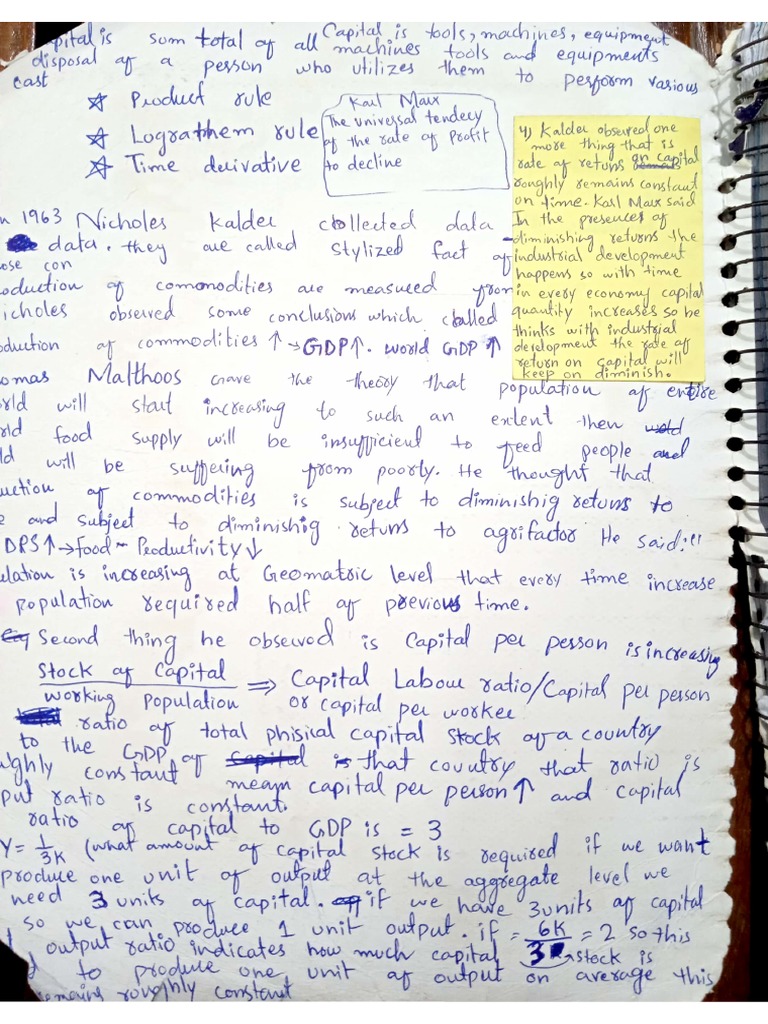 Capital is tools, machines, equipment
pital is sum total of all machines tools and equipments
disposal of a person who utilizes them to perform various
cast
☆ Product rule
☆ Lograthem rule
☆ Time derivative
Karl Marx
The universal tendecy
of the rate of Profit
to decline
4) Kalder observed one
more thing that is
rate of returns on capital
roughly remains constant
on time. Karl Marx said
In the presences of
diminishing returns the
industrial development
happens so with time
in every economy capital
quantity increases so be
thinks with industrial
development the rate of
return on capital will
keep on diminish.
n 1963 Nicholes Kalder collected data
data. they are called Stylized fact of
ose con
oduction of commodities are measured from
icholes observed some conclusions which called
oduction of commodities ↑ → GDP↑. World GDP ↑
omas Malthoos gave the theory that population of entire
orld will start increasing to such an extent then
rld food supply will be insufficient to feed people and
ld will be suffering from poorty. He thought that
uction of commodities is subject to diminishig returns to
e and subject to diminishig returns to agrifactor He said:"
DRS↑→Food - Productivity↓
ulation is increasing at Geomatric level that every time increase
Population required half of previous time.
Second thing he observed is Capital per person is increasing
Stock of Capital
working population ⇒ Capital Labour ratio/Capital per person
or capital per worker
ratio of total phisical capital stock of a country
to the GDP of that country that ratio is
ughly constant mean capital per person↑ and capital
put ratio is constant.
ratio of capital to GDP is = 3
Y = 1/3K (what amount of capital stock is required if we want
produce one unit of output at the aggregate level we
need 3 units of capital. if we have 3 units of capital
so we can produce 1 unit output. if = 6K/3 = 2 so this
output ratio indicates how much capital stock is
to produce one unit of output on average this
remains roughly constant